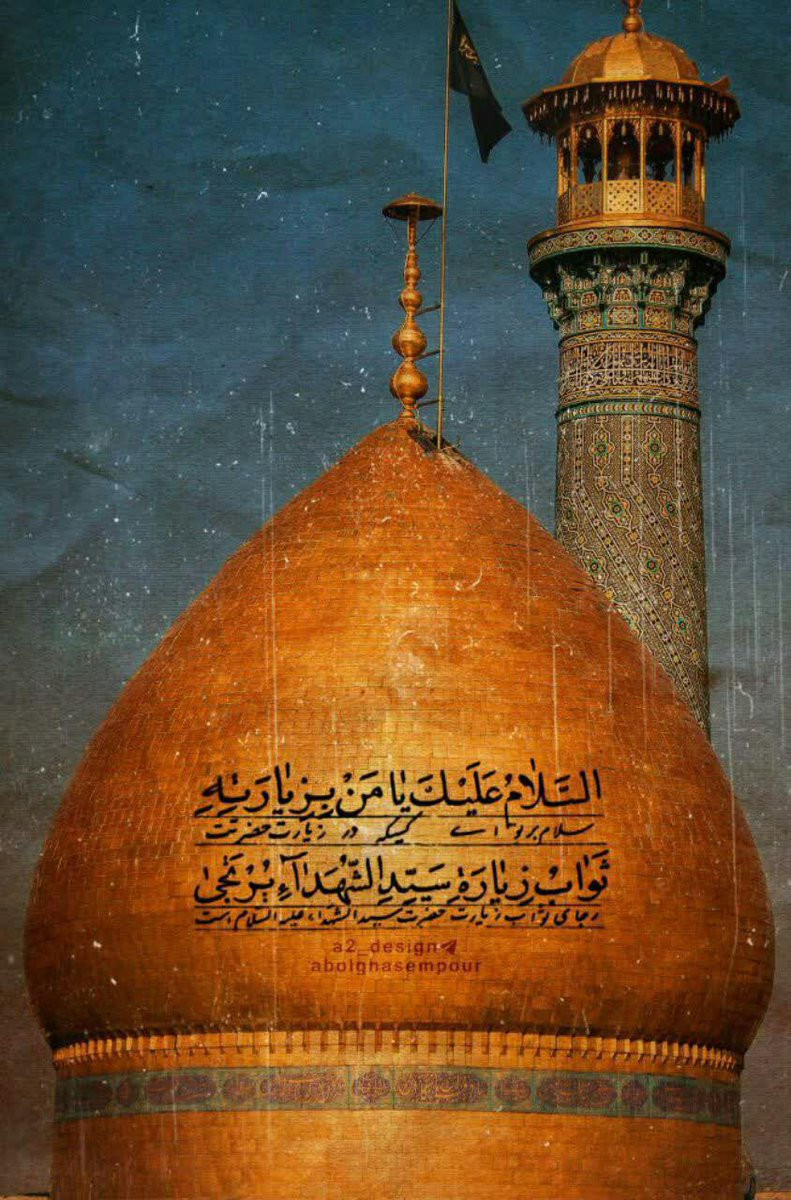 اَلسَّلٰامُ عَلَیْكَ یٰا مَنْ بِزِیٰارَتِهِ
سلام بر تو اے کسیکه در زیارت حضرتت
ثَوٰابُ زِیٰارَةِ سَیِّدِ الشُّهَدٰآءِ یُرْتَجیٰ
رجای ثواب زیارت حضرت سیدالشهداء علیه السلام است
a2_design
abolghasempour